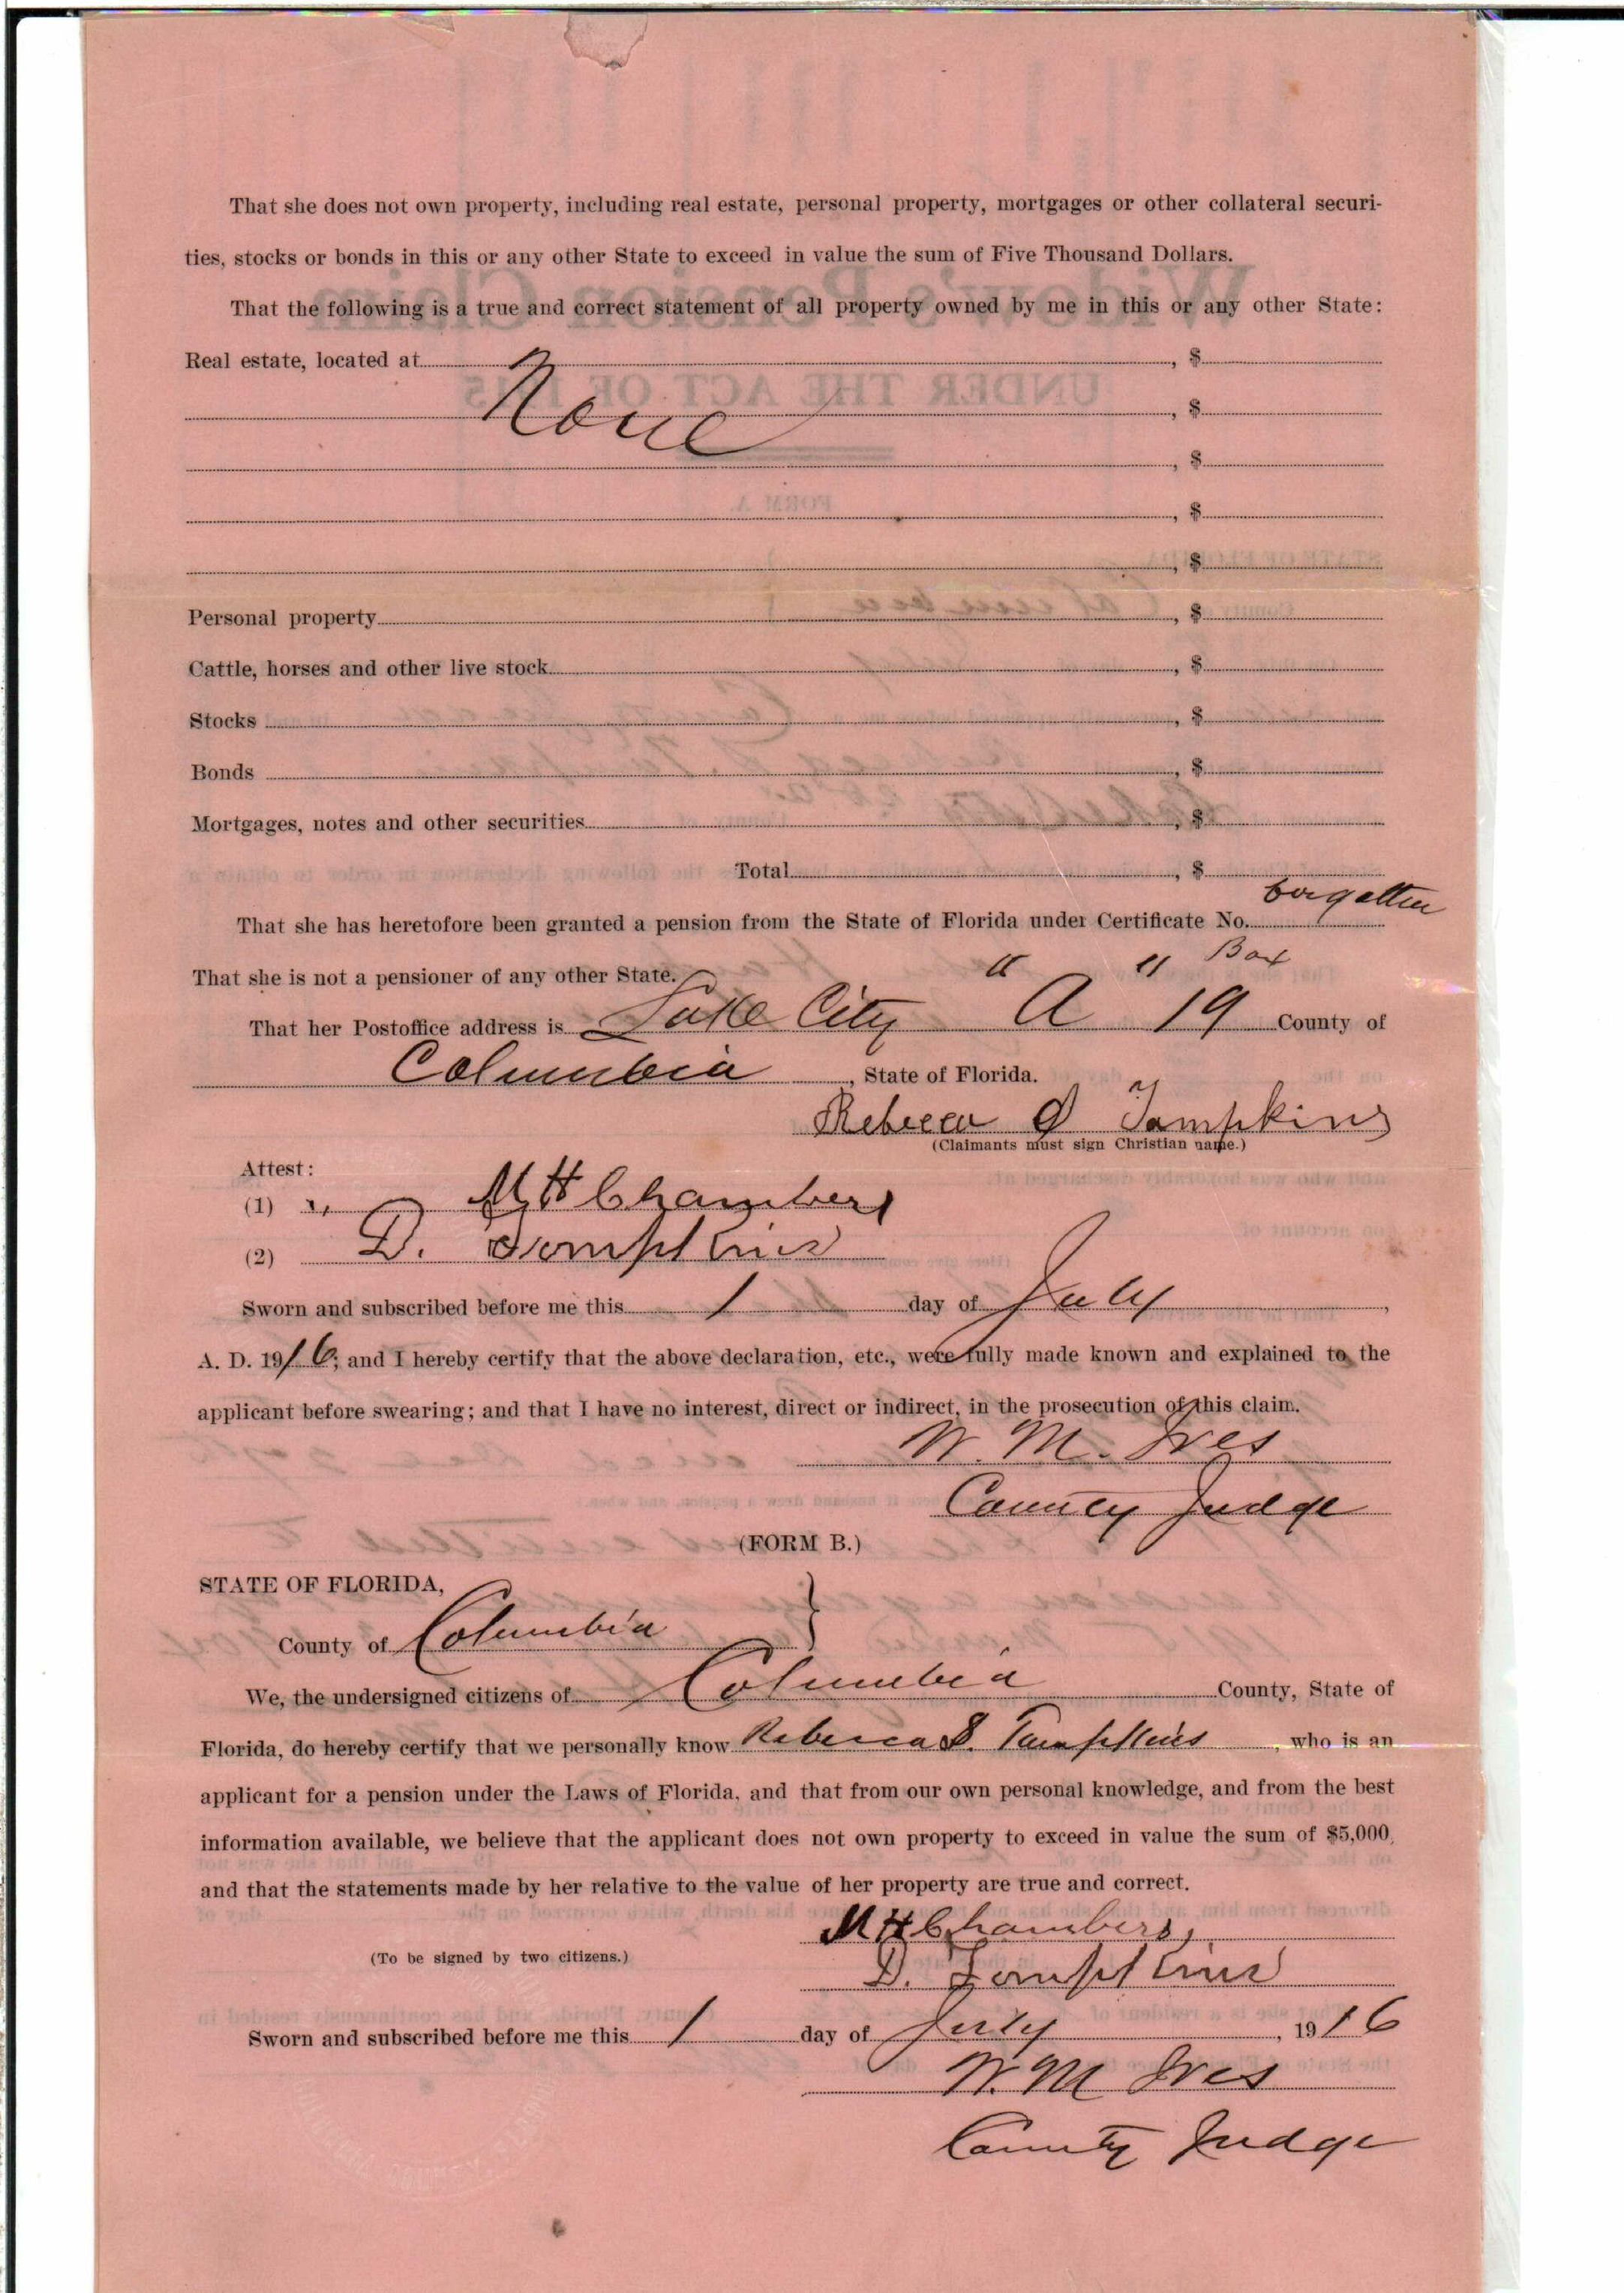 That she does not own property, including real estate, personal property, mortgages or other collateral securi-
ties, stocks or bonds in this or any other State to exceed in value the sum of Five Thousand Dollars.
That the following is a true and correct statement of all property owned by me in this or any other State:
Real estate, located at, $
None, $
, $
, $
, $
Personal property, $
Cattle, horses and other live stock, $
Stocks, $
Bonds, $
Mortgages, notes and other securities, $
Total, $
That she has heretofore been granted a pension from the State of Florida under Certificate No. forgotten
That she is not a pensioner of any other State.
That her Postoffice address is Lake City "A" Box 19 County of
Columbia, State of Florida.
Rebecca D Tompkins
(Claimants must sign Christian name.)
Attest:
(1) M H Chambers
(2) D. Tompkins
Sworn and subscribed before me this 1 day of July,
A. D. 1916; and I hereby certify that the above declaration, etc., were fully made known and explained to the
applicant before swearing; and that I have no interest, direct or indirect, in the prosecution of this claim.
W. M. Ives
County Judge
(FORM B.)
STATE OF FLORIDA,
County of Columbia }
We, the undersigned citizens of Columbia County, State of
Florida, do hereby certify that we personally know Rebecca D. Tompkins, who is an
applicant for a pension under the Laws of Florida, and that from our own personal knowledge, and from the best
information available, we believe that the applicant does not own property to exceed in value the sum of $5,000,
and that the statements made by her relative to the value of her property are true and correct.
M H Chambers,
(To be signed by two citizens.)
D. Tompkins
Sworn and subscribed before me this 1 day of July, 1916
W. M Ives
County Judge